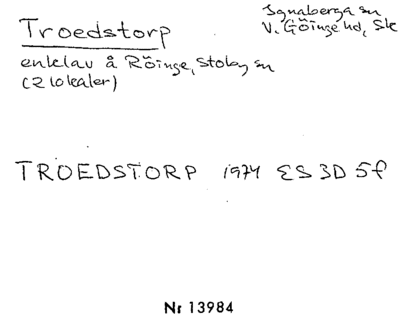 Troedstorp
Ignaberga sn
V. Göinge hd, Sk
enklav å Röinge, Stoby sn
(2 lokaler)
TROEDSTORP 1974 ES 3D 5f
Nr 13984